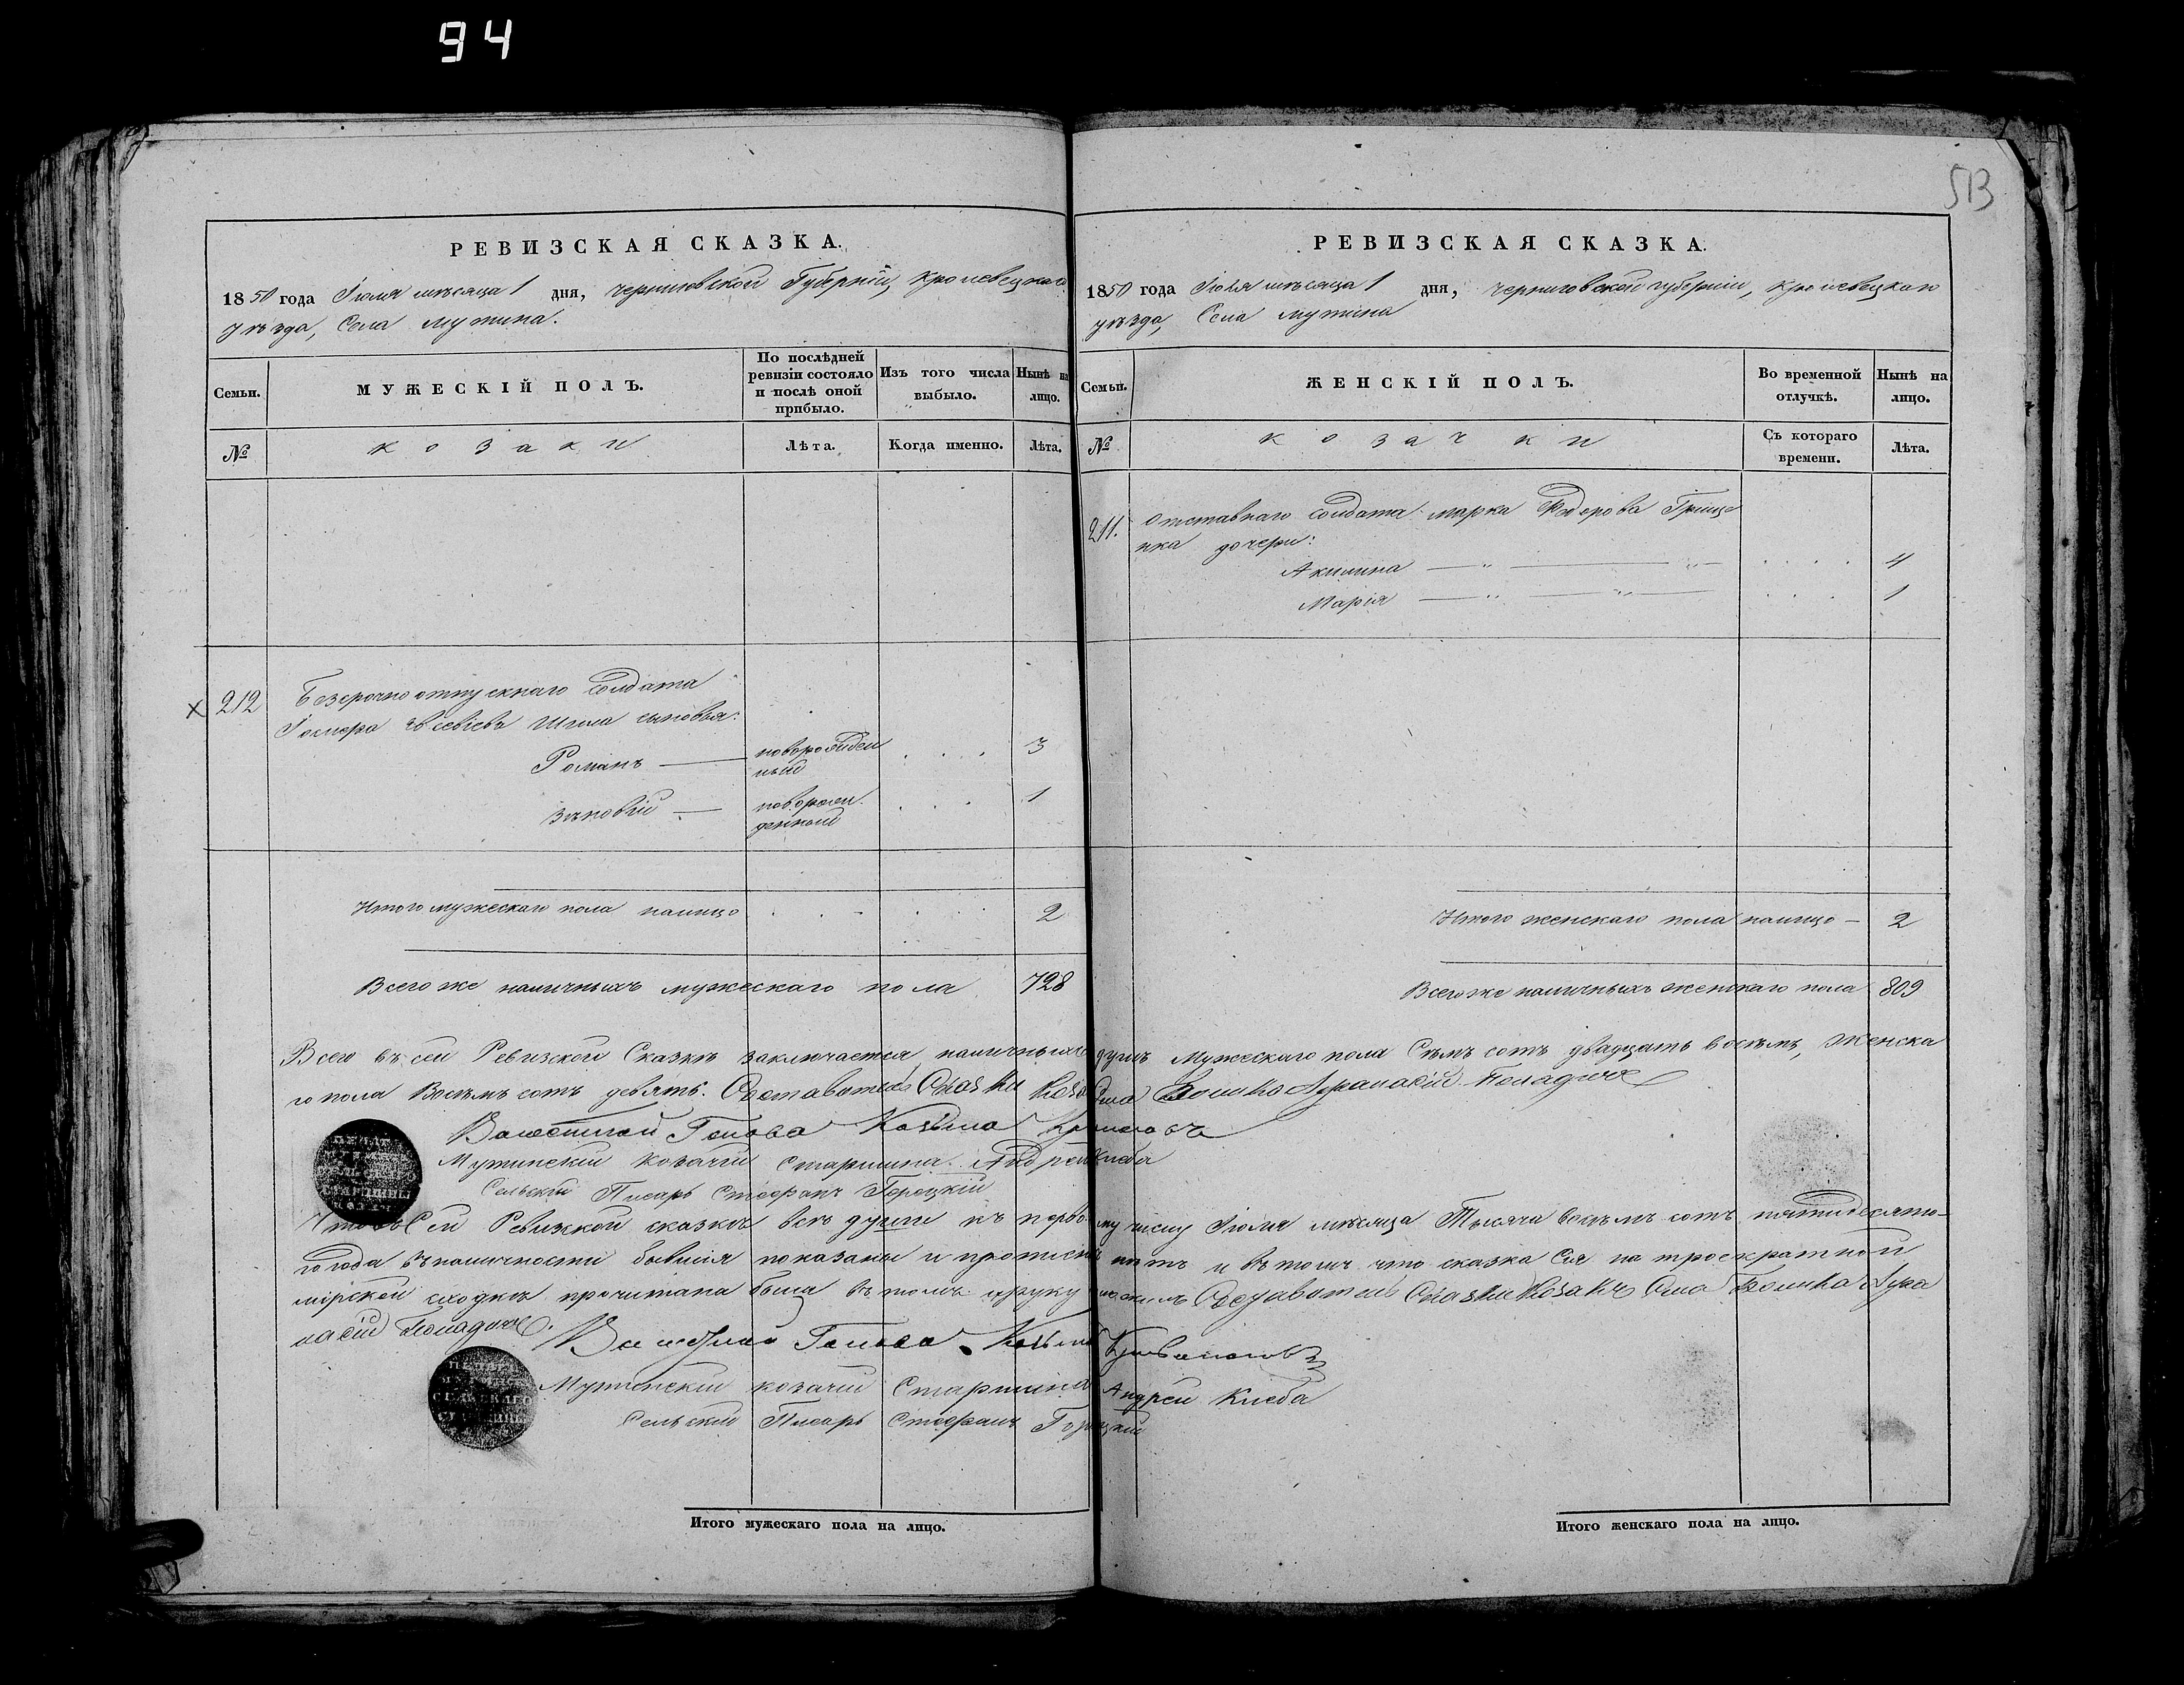 94
513
РЕВИЗСКАЯ СКАЗКА.
1850 года Іюля мѣсяца 1 дня, Черниговской Губерніи, Кролевецкаго
уѣзда, Села Мутина.
Семьи.
МУЖЕСКІЙ ПОЛЪ.
По послѣдней ревизіи состояло и послѣ оной прибыло.
Изъ того числа выбыло.
Нынѣ на лицо.
№
козаки
Лѣта.
Когда именно.
Лѣта.
х 212
Безсрочно отпускнаго Солдата
Евсевіева Шила сыновья:
Романъ — новорожден 3
ный
Зѣновій — новорож 1
денный
Итого мужескаго пола налицо 2
Всего же наличныхъ мужескаго пола 728
РЕВИЗСКАЯ СКАЗКА.
1850 года Іюля мѣсяца 1 дня, Черниговской губерніи, Кролевецкаго
уѣзда, Села Мутина
Семьи.
ЖЕНСКІЙ ПОЛЪ.
Во временной отлучкѣ.
Нынѣ на лицо.
№
козачки
Съ котораго времени.
Лѣта.
211. Отставнаго Солдата Марка Федорова Грице
нка дочери:
Акилина — " — " — 4
Марія — " — " — 1
Итого женскаго пола налицо — 2
Всего же наличныхъ женскаго пола 809
Всего въ сей Ревизской Сказкѣ заключается наличныхъ душъ Мужескаго пола Семъ сотъ двадцать восемъ, Женска
го пола Восемъ сотъ девять.
Волостной Голова Козьма
Мутинскій козачій Старшина Андрей Клеба
Сельскій Писарь Стефанъ Горецкій
Что въ Сей Ревизской сказкѣ всѣ души къ первому числу Іюля мѣсяца Тысяча восемъ сотъ пятидесято-
го года въ наличности бывшія показаны и прописныхъ нѣтъ и въ томъ что сказка Сія на троекратной
мірской сходкѣ прочитана была въ томъ и руку Сказки Козакъ
Волостной Голова Козьма
Мутинскій козачій Старшина Андрей Клеба
Сельскій Писарь Стефанъ Горецкій
Итого мужескаго пола на лицо.
Итого женскаго пола на лицо.